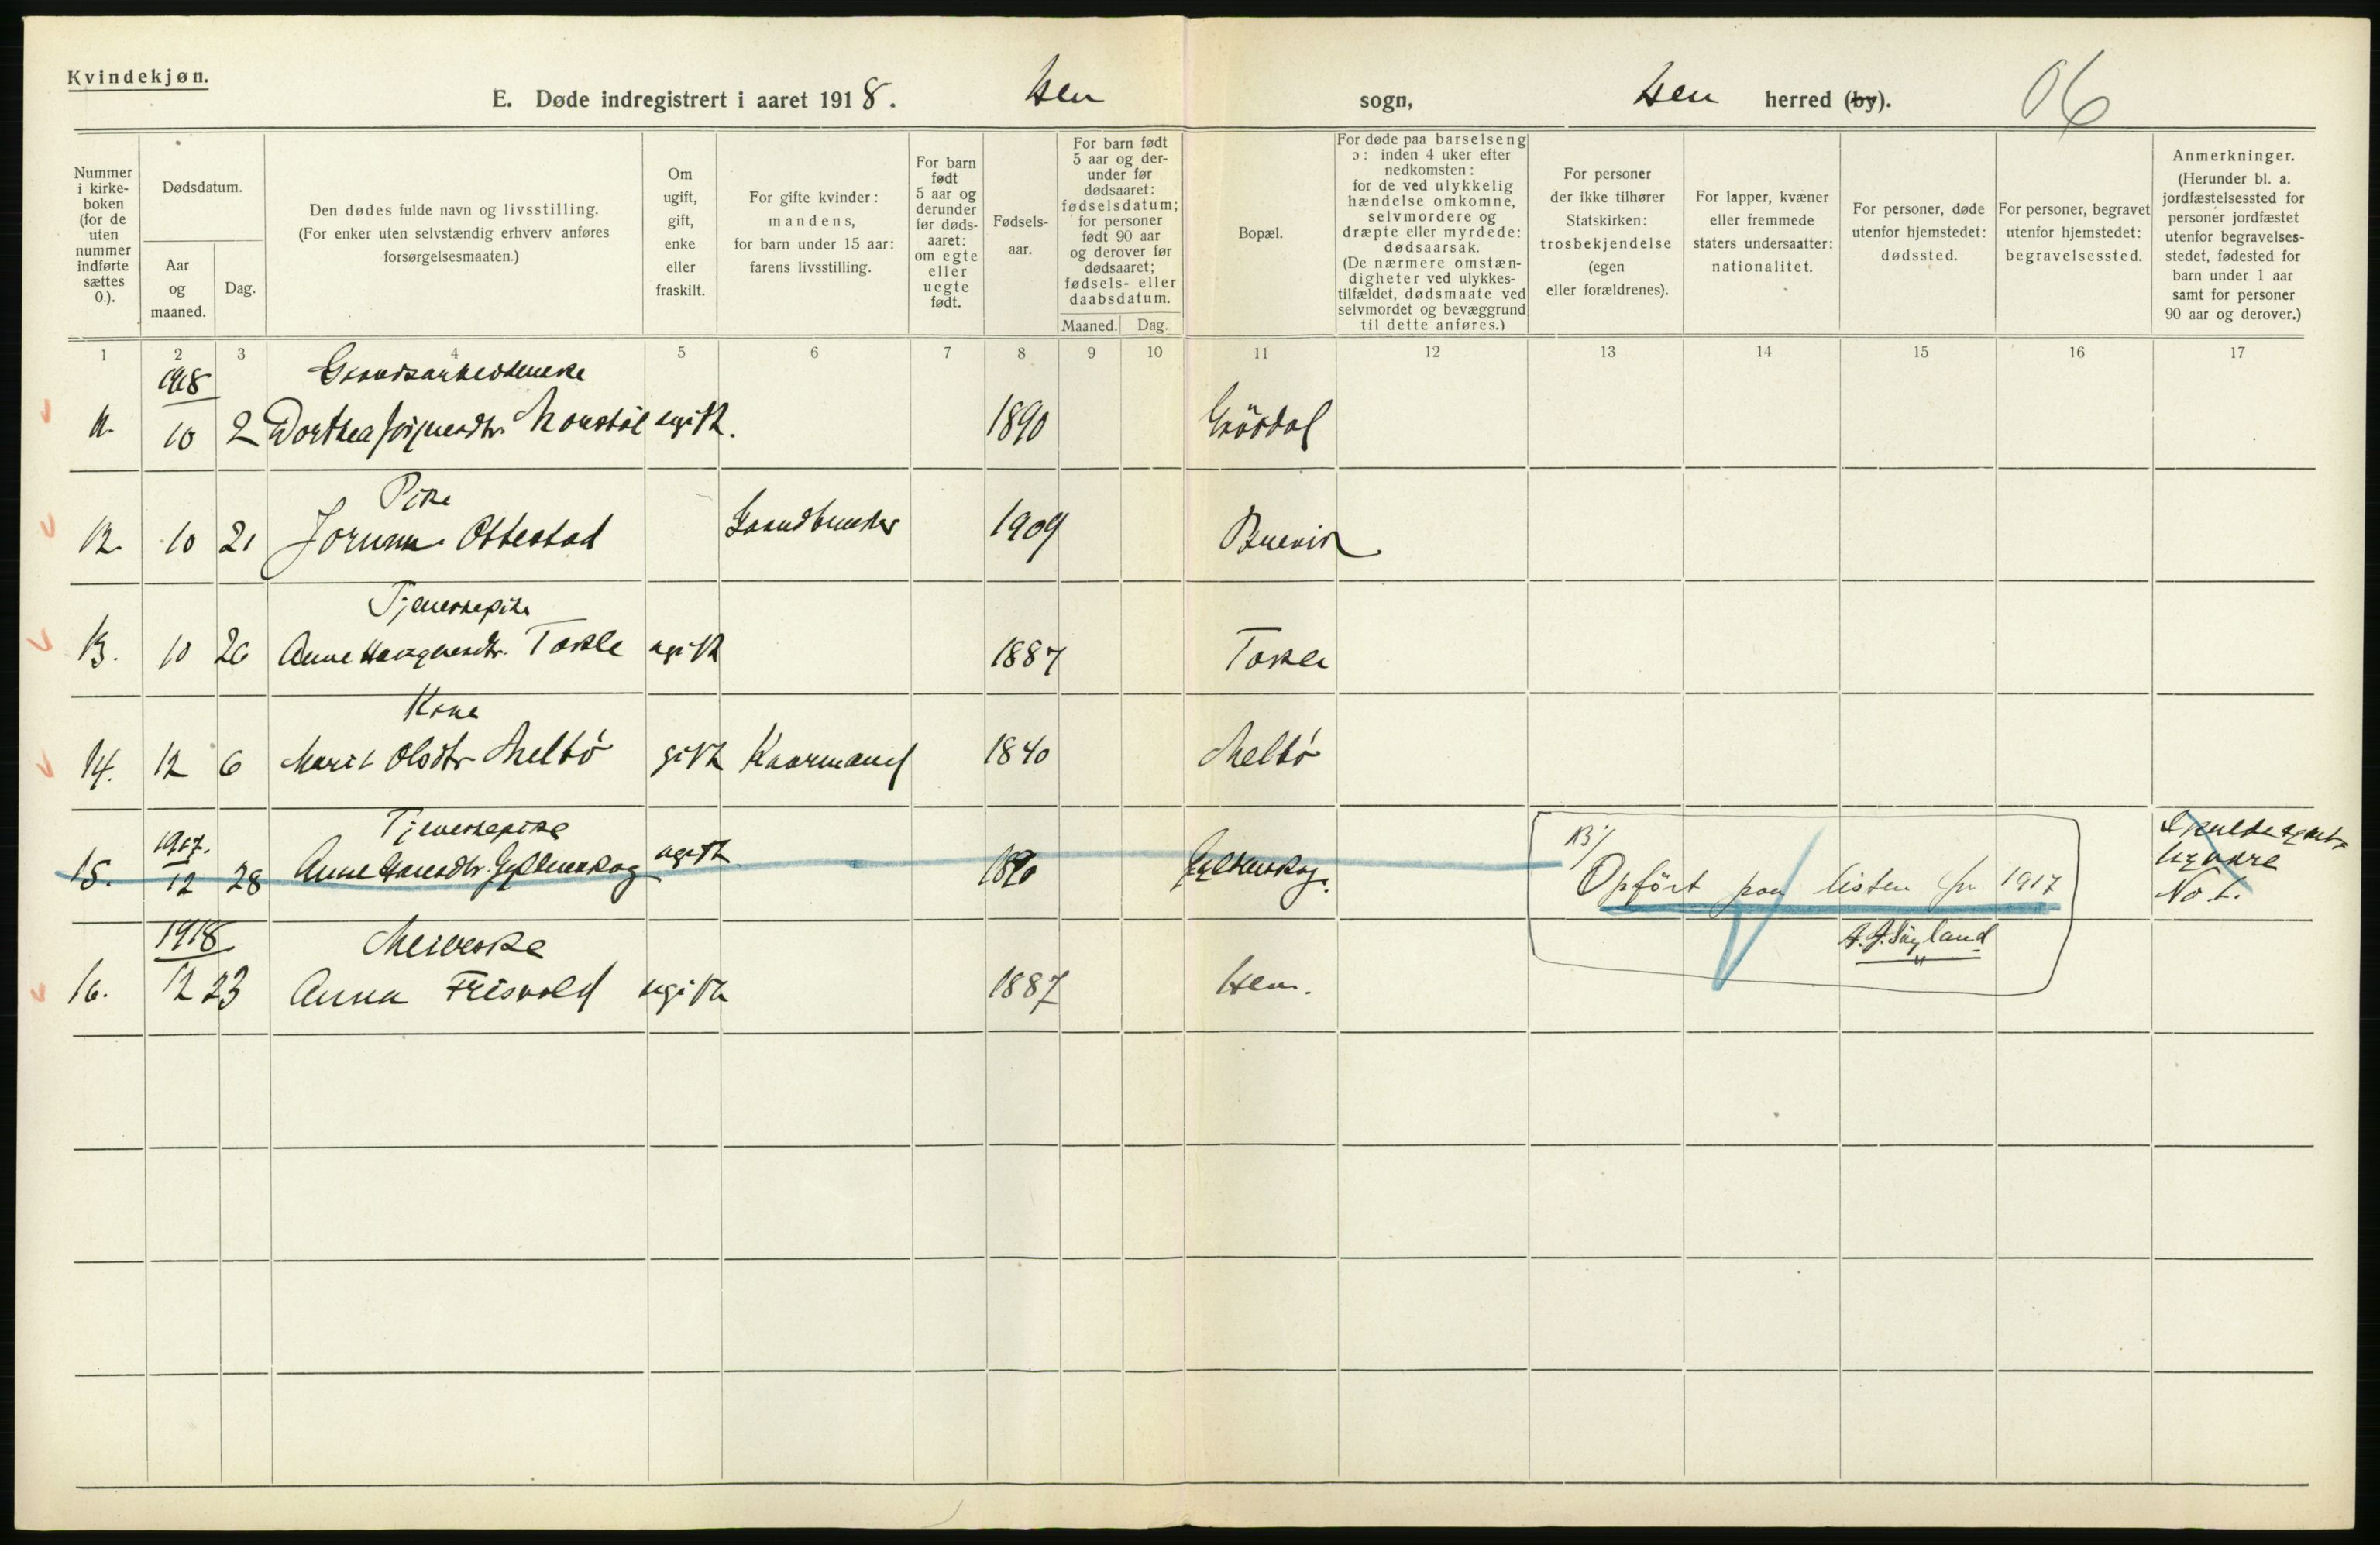 Kvindekjøn.
E. Døde indregistrert i aaret 1918. Hen sogn, Hen herred (by). 06
Nummer i kirke-boken (for de uten nummer indførte sættes 0.).
Dødsdatum.
Aar og maaned.
Dag.
Den dødes fulde navn og livsstilling.
(For enker uten selvstændig erhverv anføres
forsørgelsesmaaten.)
Om ugift, gift, enke eller fraskilt.
For gifte kvinder:
mandens,
for barn under 15 aar:
farens livsstilling.
For barn født 5 aar og derunder før døds-aaret: om egte eller uegte født.
Fødsels-aar.
For barn født 5 aar og der-under før dødsaaret: fødselsdatum; for personer født 90 aar og derover før dødsaaret; fødsels- eller daabsdatum.
Maaned. Dag.
Bopæl.
For døde paa barselseng
ɔ: inden 4 uker efter
nedkomsten:
for de ved ulykkelig
hændelse omkomne,
selvmordere og
dræpte eller myrdede:
dødsaarsak.
(De nærmere omstæn-
digheter ved ulykkes-
tilfældet, dødsmaate ved
selvmordet og bevæggrund
til dette anføres.)
For personer
der ikke tilhører
Statskirken:
trosbekjendelse
(egen
eller forældrenes).
For lapper, kvæner
eller fremmede
staters undersaatter:
nationalitet.
For personer, døde
utenfor hjemstedet:
dødssted.
For personer, begravet
utenfor hjemstedet:
begravelsessted.
Anmerkninger.
(Herunder bl. a.
jordfæstelsessted for
personer jordfæstet
utenfor begravelses-
stedet, fødested for
barn under 1 aar
samt for personer
90 aar og derover.)
1 2 3 4 5 6 7 8 9 10 11 12 13 14 15 16 17
1918 Gaardsarbeiderske
11. 10 2 Dorthea ugift. 1890 Grösdal
Pike
12. 10 21 Jorunn Ottestad Gaardbruker 1909 Buevik
Tjenestepike
13. 10 26 Anne Haagensdtr. Tokle ugift 1887 Tokle
Kone
14. 12 6 Marit Olsdtr Melbö gift Kaarmand 1840 Melbö
1917. Tjenestepike
15. 12 28 Anne Hansdtr. Gjelteneskog ugift 1890 Gjeltenskog.
Opfört paa listen for 1917
No 1.
A. J. Søyland
1918 Meierske
16. 12 23 Anna Frisvold ugift 1887 Hen.